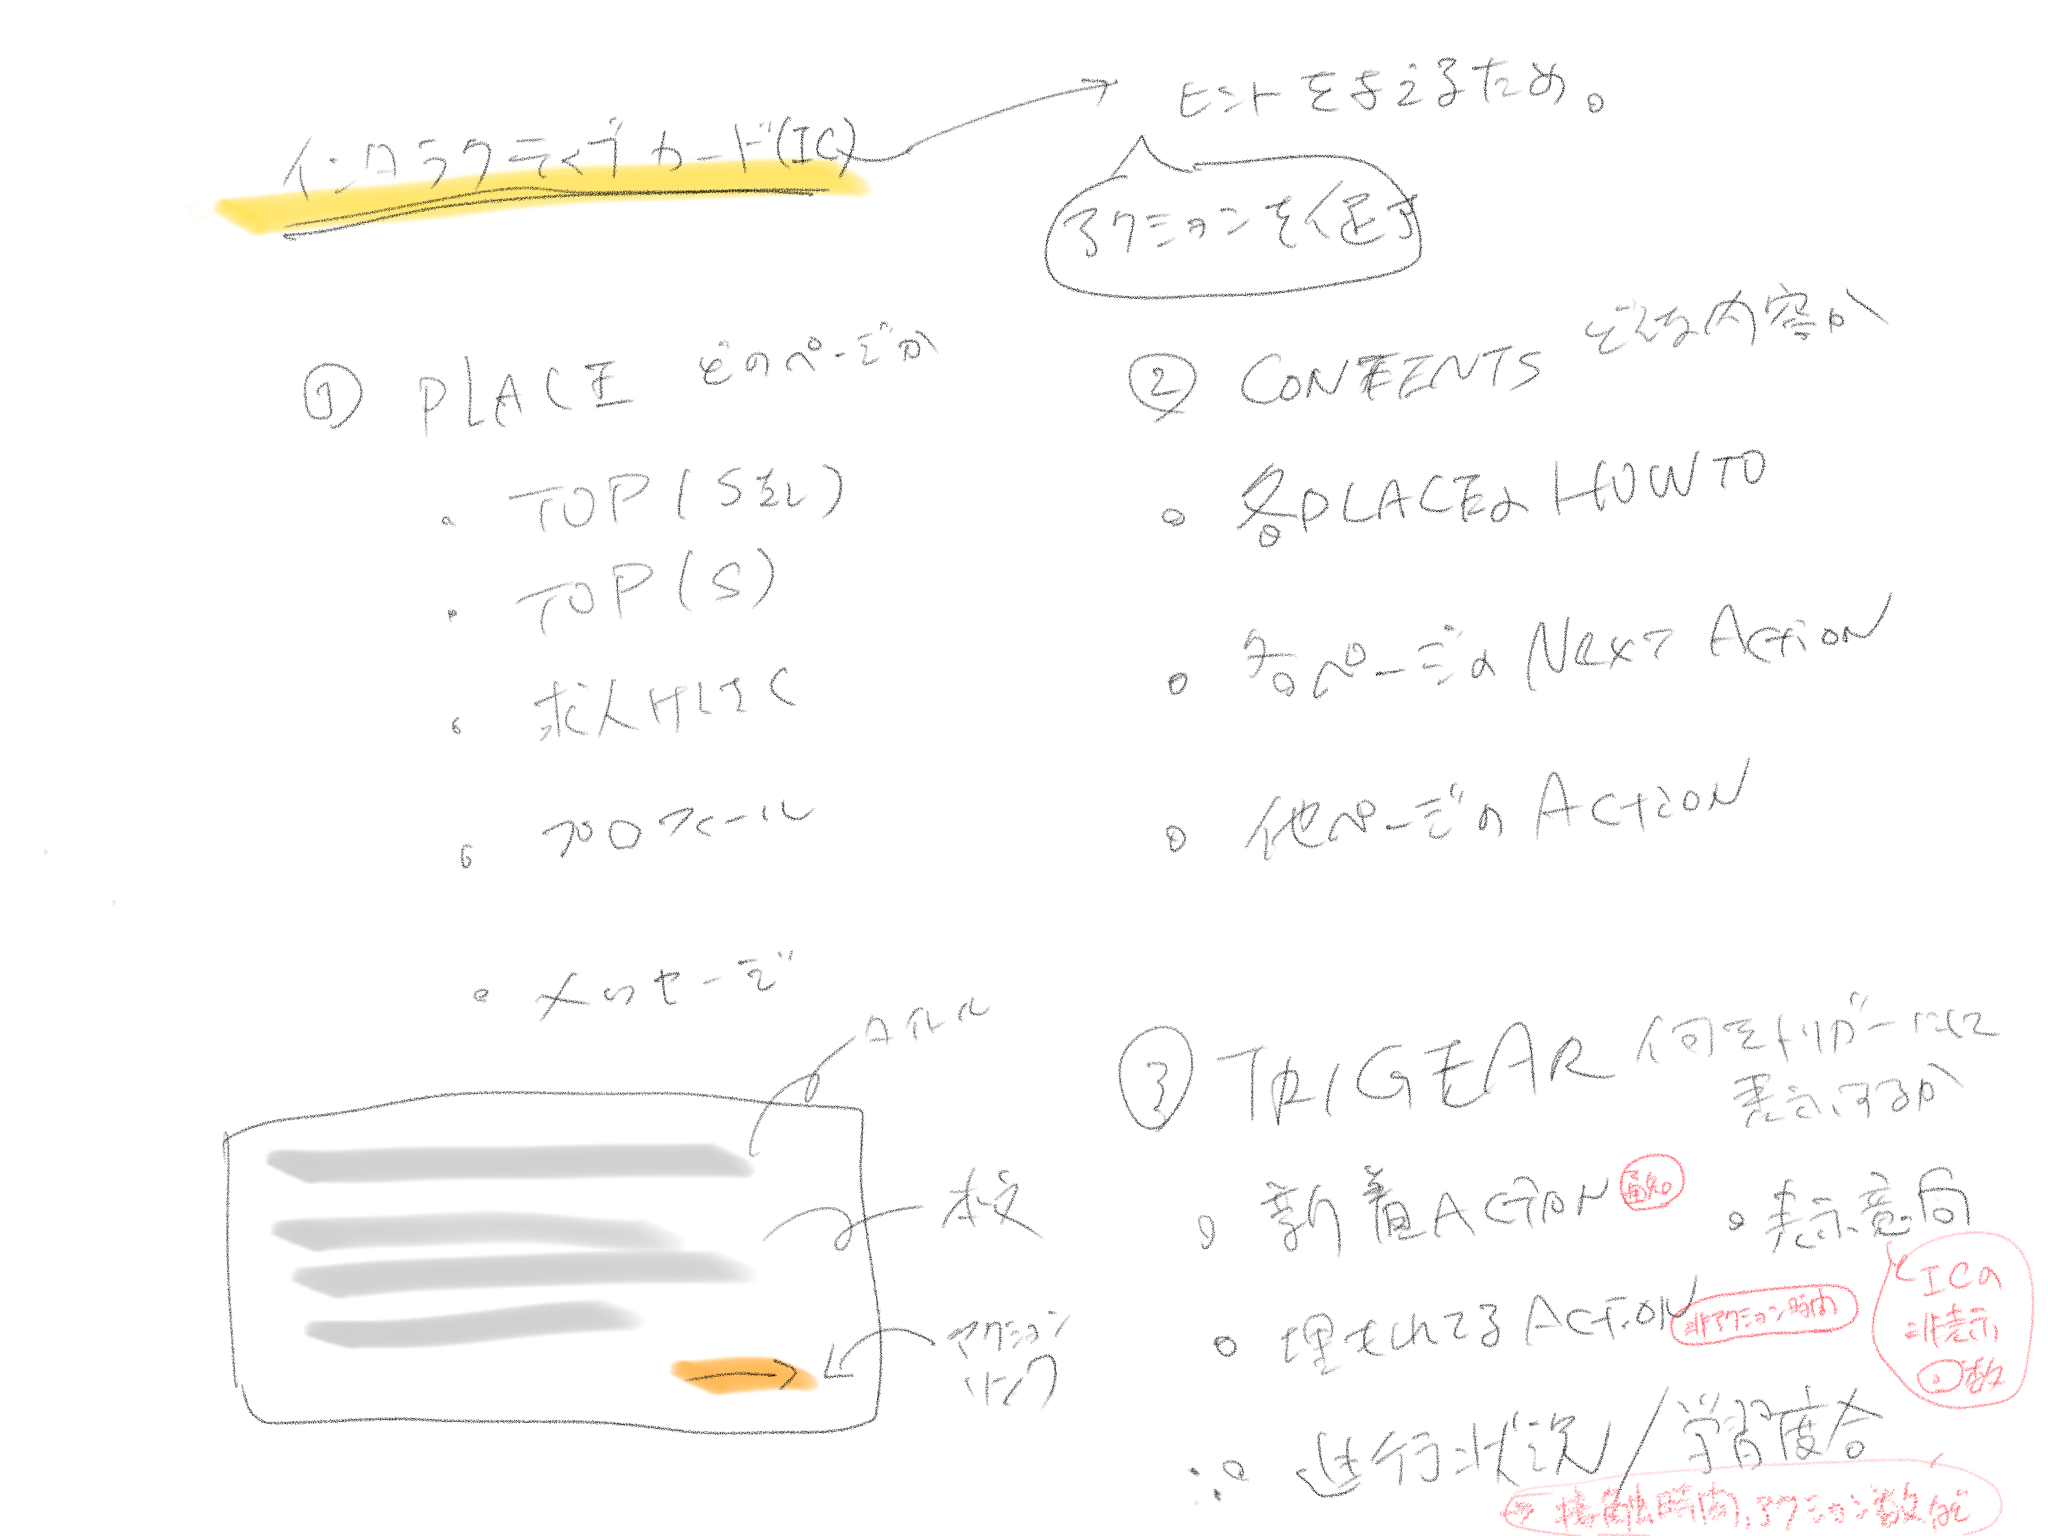 インタラクティブカード(IC)
ヒントを与えるため。
アクションを促す
① PLACE どのページか
・TOP(S無し)
・TOP(S)
・求人サイトTC
・プロフィール
・メッセージ
タイトル
本文
アクション
リンク
② CONTENTS どんな内容か
○ 各PLACEのHOWTO
○ 各ページのNEXT ACTION
○ 他ページのACTION
③ TRIGEAR 何をトリガーにして
表示するか
○ 新着ACTION 通知
○ 表示意向
○ 埋もれてるACTION 非アクション時間
ICの
非表示
回数
○ 進行状況/学習度合
→ 接触時間、アクション数など